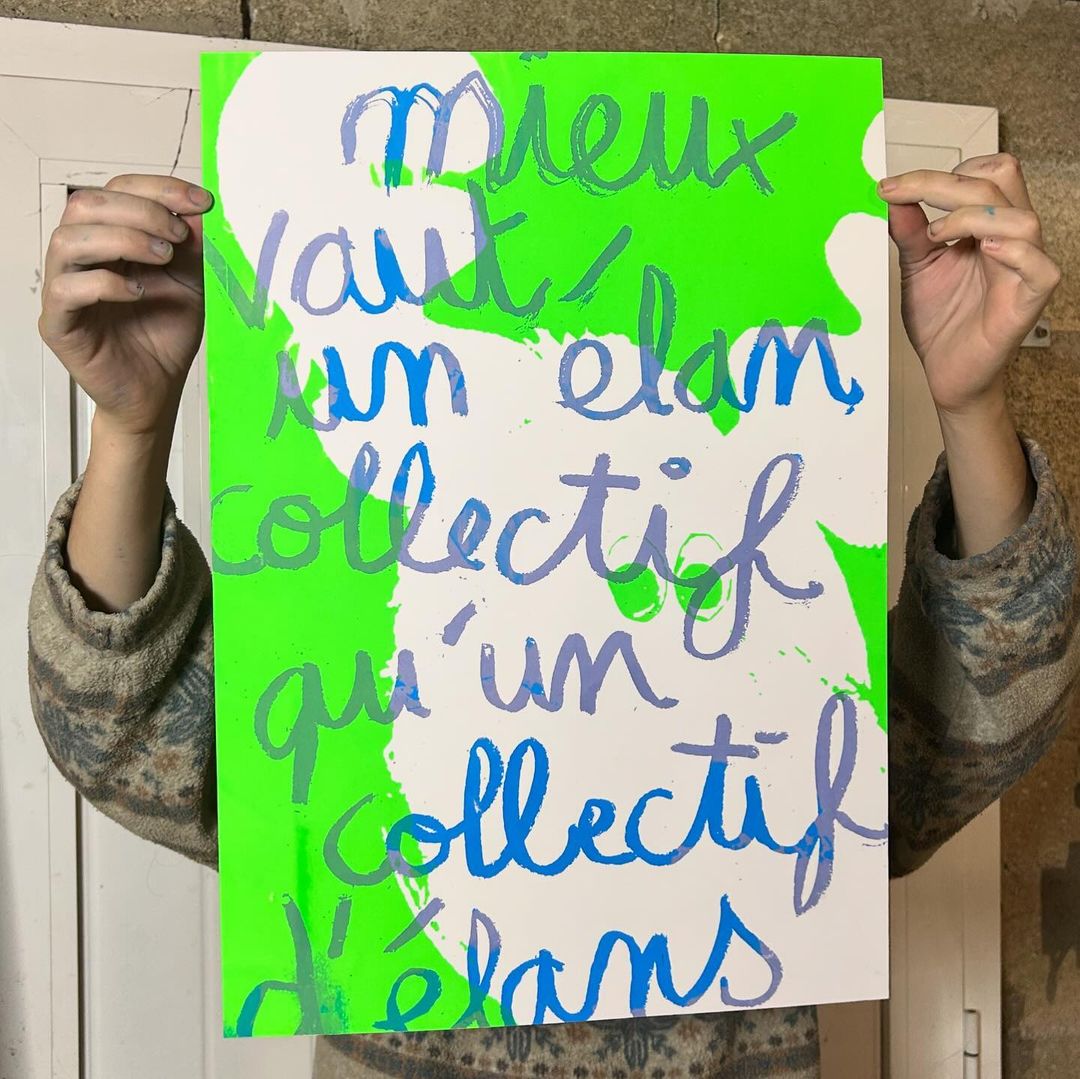 mieux
vaut
un élan
collectif
qu'un
collectif
d'élans